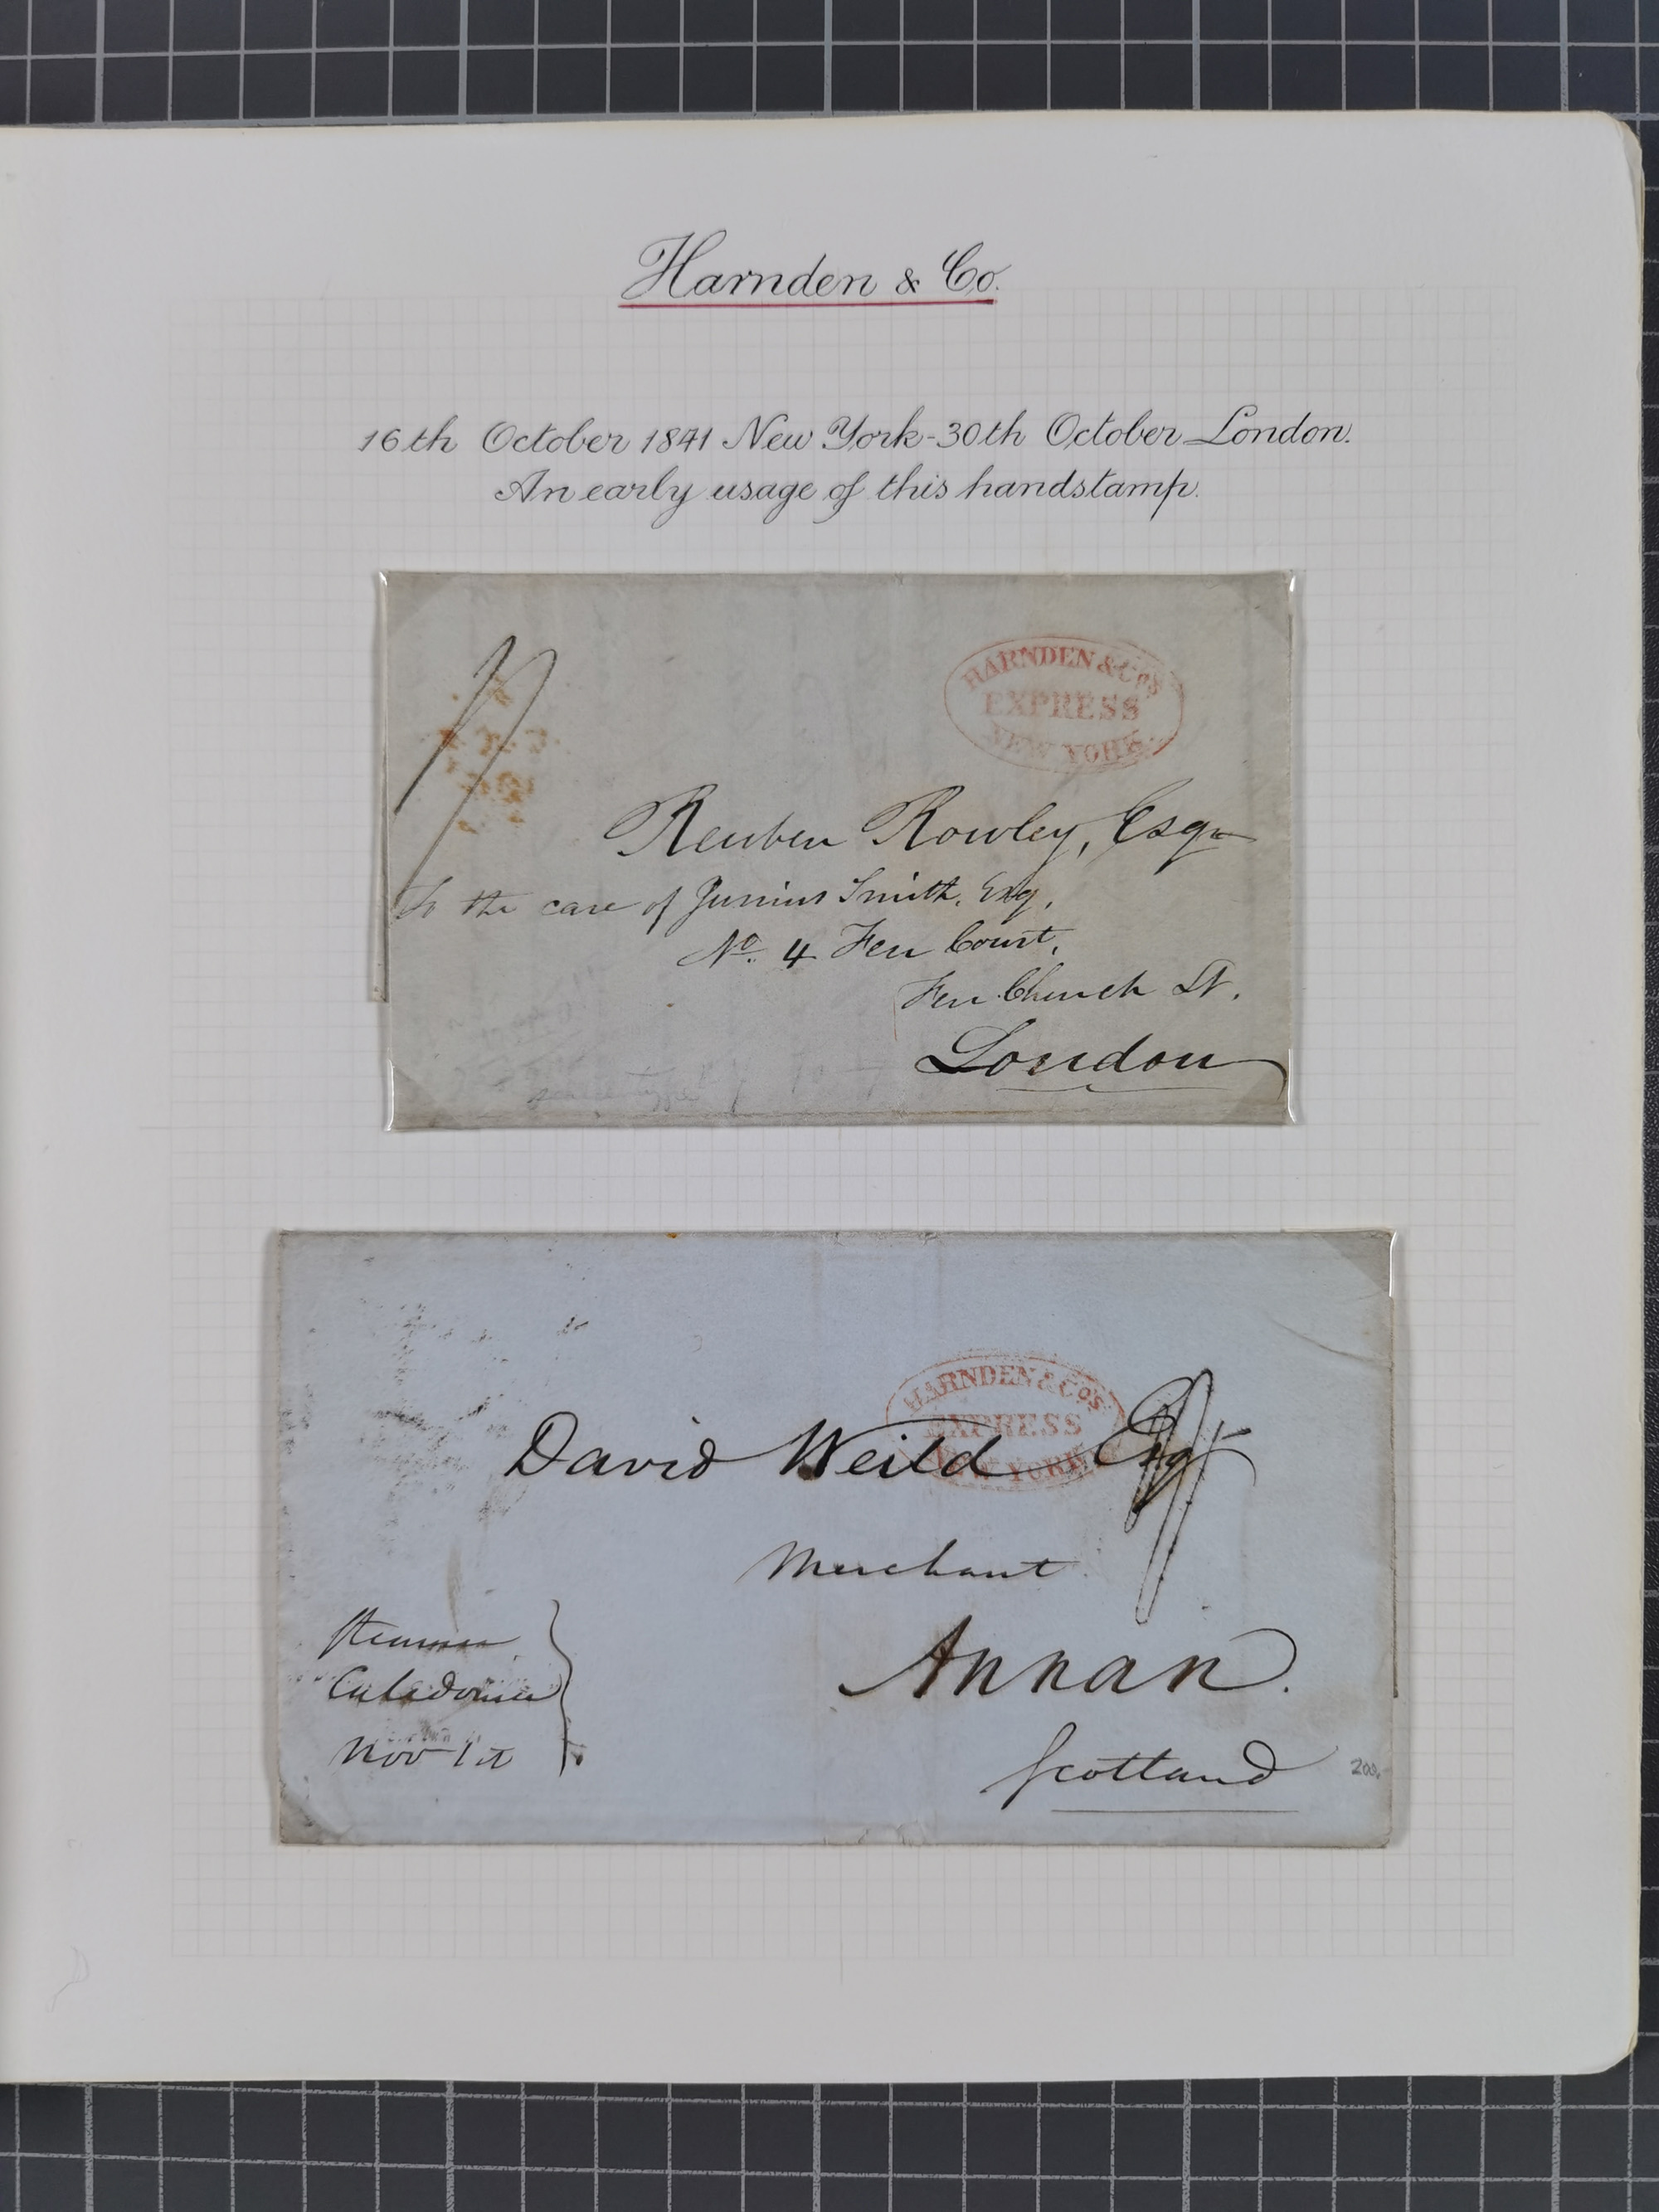 Harnden & Co.
16th October 1841 New York-30th October London.
An early usage of this handstamp.
HARNDEN & Co's
EXPRESS
NEW YORK
Reuben Rowley, Esqr
To the care of Junius Smith, Esq,
No. 4 Fen Court,
Fen Church St.
London
HARNDEN & Co's
EXPRESS
NEW YORK
David Weild Esqr
Merchant
Annan.
Scotland
Steamer
Caledonia
Nov 1st
200.